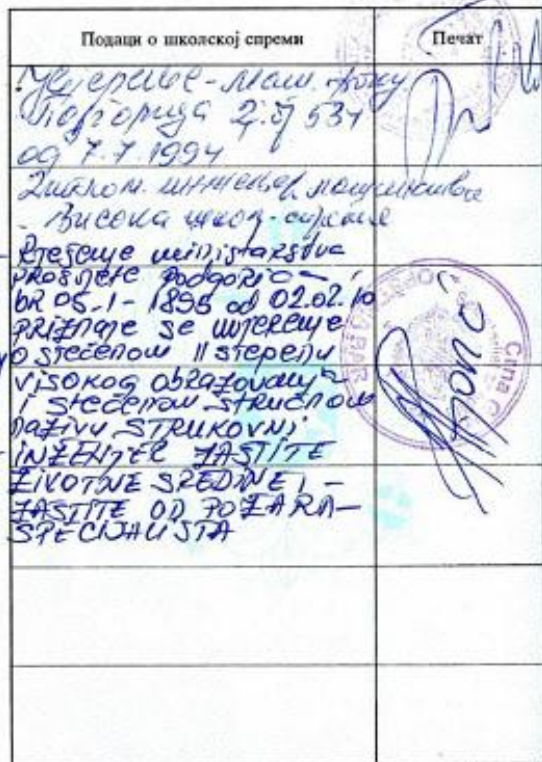 Подаци о школској спреми
Печат
Увјерење-маш. фоку
Подгорица Д.бј 534
од 7.7.1994
Диплом. инжењер машинства
- Висока школ. спрема
Rješenje ministarstva
prosvjete Podgorica -
br 05-1-1895 od 02.02.10
priznaje se uvjerenje
o stečenom II stepenu
visokog obrazovanja
i stečenom stručnom
nazivu STRUKOVNI
INŽENJER ZAŠTITE
ŽIVOTNE SREDINE I -
ZAŠTITE OD POŽARA -
SPECIJALISTA
Crna
BAR